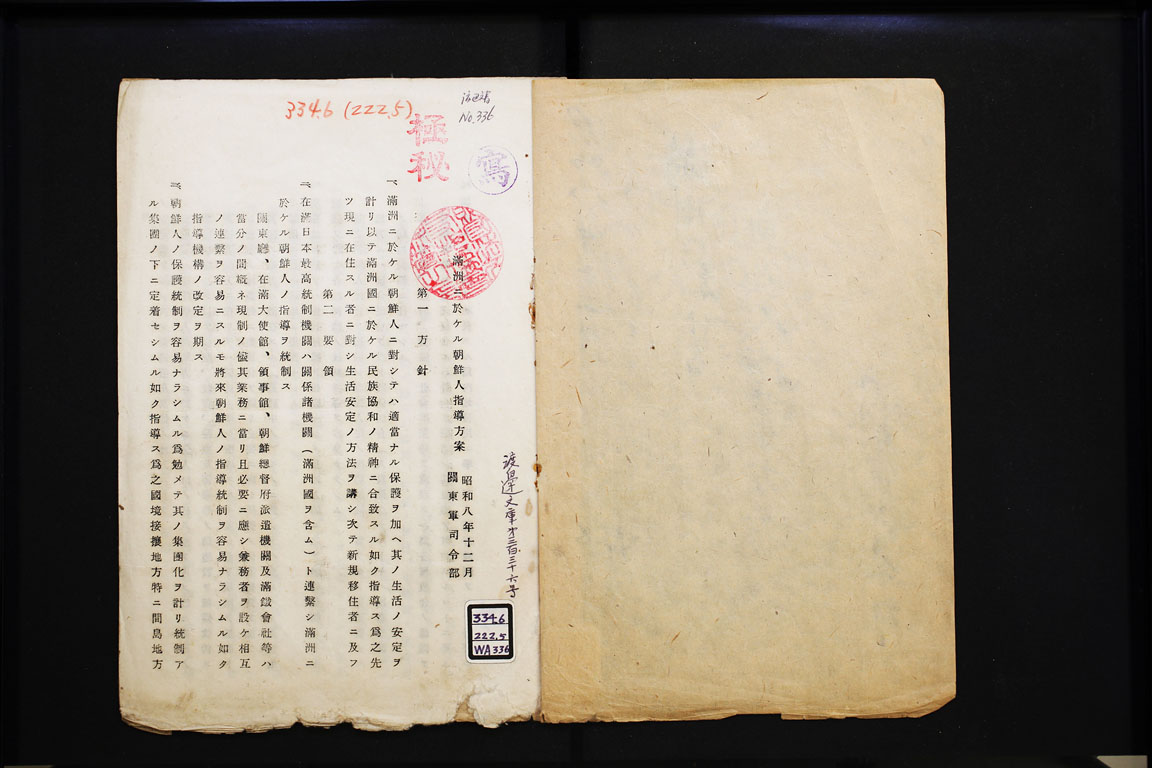 334.6 (222.5)
No.336
極秘
寫
滿洲ニ於ケル朝鮮人指導方案
昭和八年十二月
關東軍司令部
第一　方針
一、滿洲ニ於ケル朝鮮人ニ對シテハ適當ナル保護ヲ加ヘ其ノ生活ノ安定ヲ
計リ以テ滿洲國ニ於ケル民族協和ノ精神ニ合致スル如ク指導ス爲之先
ツ現ニ在住スル者ニ對シ生活安定ノ方法ヲ講シ次テ新規移住者ニ及フ
第二　要領
一、在滿日本最高統制機關ハ關係諸機關（滿洲國ヲ含ム）ト連繫シ滿洲ニ
於ケル朝鮮人ノ指導ヲ統制ス
關東廳、在滿大使館、領事館、朝鮮總督府派遣機關及滿鐵會社等ハ
當分ノ間概ネ現制ノ儘其業務ニ當リ且必要ニ應シ兼務者ヲ設ケ相互
ノ連繫ヲ容易ニスルモ將來朝鮮人ノ指導統制ヲ容易ナラシムル如ク
指導機構ノ改定ヲ期ス
二、朝鮮人ノ保護統制ヲ容易ナラシムル爲勉メテ其ノ集團化ヲ計リ統制ア
ル集團ノ下ニ定着セシムル如ク指導ス爲之國境接攘地方特ニ間島地方
渡邊文庫第三百三十六号
334.6
222.5
WA336